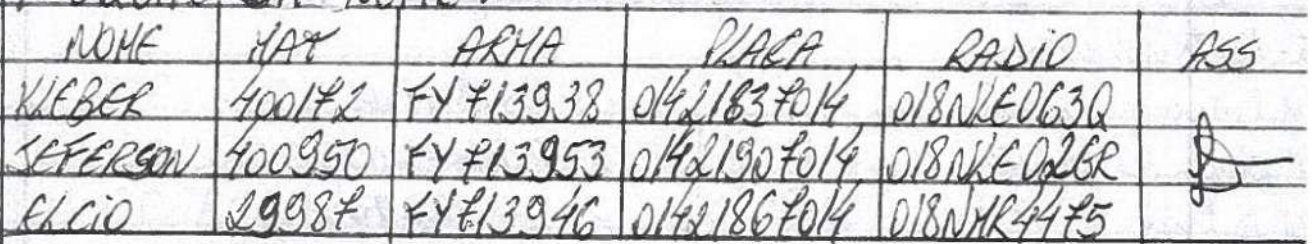 NOME MAT ARMA PLACA RADIO ASS
KLEBER 400172 FY713938 01421837014 018NLE063Q
JEFERSON 400950 FY713953 01421907014 018NLE02GR
ELCIO 29987 FY713946 01421867014 018NMR4475